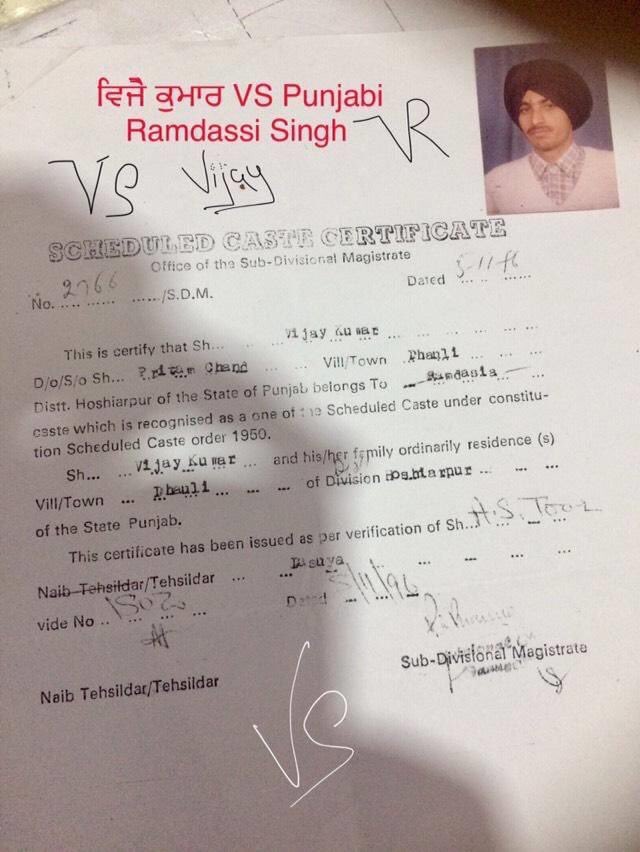 ਵਿਜੈ ਕੁਮਾਰ VS Punjabi
Ramdassi Singh
VR
VS Vijay
SCHEDULED CASTE CERTIFICATE
Office of the Sub-Divisional Magistrate
No. 2766 /S.D.M. Dated
This is certify that Sh... Vijay Kumar
D/o/S/o Sh... Pritam Chand ... Vill/Town
Distt. Hoshiarpur of the State of Punjab belongs To Ramdasia
caste which is recognised as a one of the Scheduled Caste under constitu-
tion Scheduled Caste order 1950.
Sh... Vijay Kumar ... and his/her family ordinarily residence (s)
Vill/Town ... ... of Division Hoshiarpur ...
of the State Punjab.
This certificate has been issued as per verification of Sh... A.S. Toor
Naib Tehsildar/Tehsildar ... Dasuya
vide No .. Dated 5/11/96
Sub-Divisional Magistrate
Naib Tehsildar/Tehsildar
VS